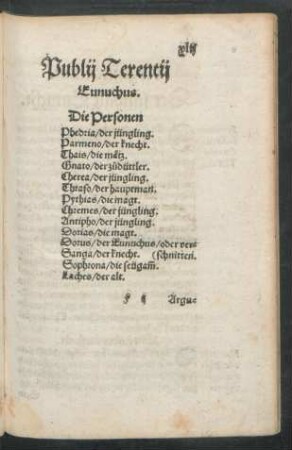 xlij
Publij Terentij
Eunuchus.
Die Personen
Phedria/der jüngling.
Parmeno/der knecht.
Thais/die mätz.
Gnato/der züdüttler.
Cherea/der jüngling.
Thraso/der hauptman.
Pythias/die magt.
Chremes/der jüngling.
Antipho/der jüngling.
Dorias/die magt.
Dorus/der Eunuchus/oder ver-
Sanga/der knecht. (schnitten.
Sophrona/die seügam̄.
Laches/der alt.
Argu-